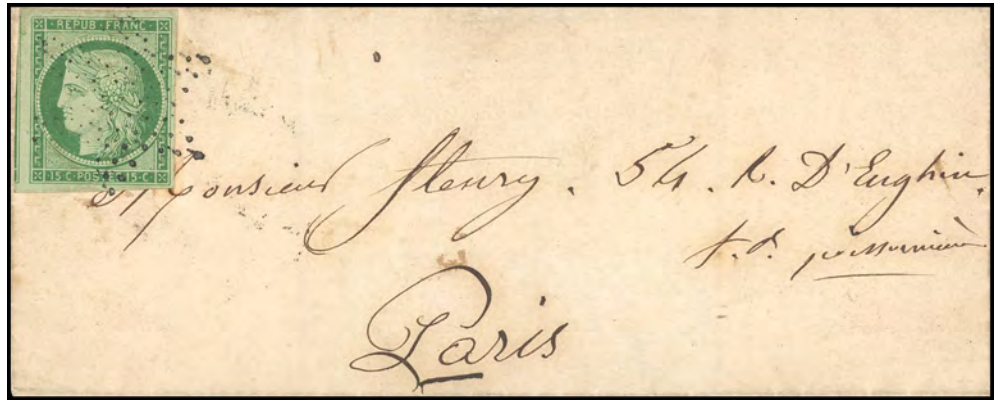 REPUB·FRANC
15·C·POSTE·15·C·
Monsieur Fleury. 54. R. D'Enghien.
f. d. poissonnière
Paris